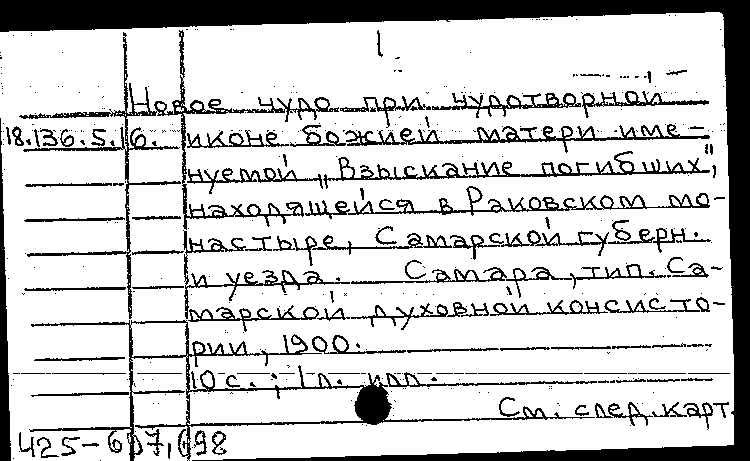 Новое чудо при чудотворной
18.136.5.16. иконе божией матери име-
нуемой „Взыскание погибших",
находящейся в Раковском мо-
настыре, Самарской губерн.
и уезда. Самара, тип. Са-
марской духовной консисто-
рии, 1900.
10 с.; 1 л. илл.
См. след. карт.
425-607,698